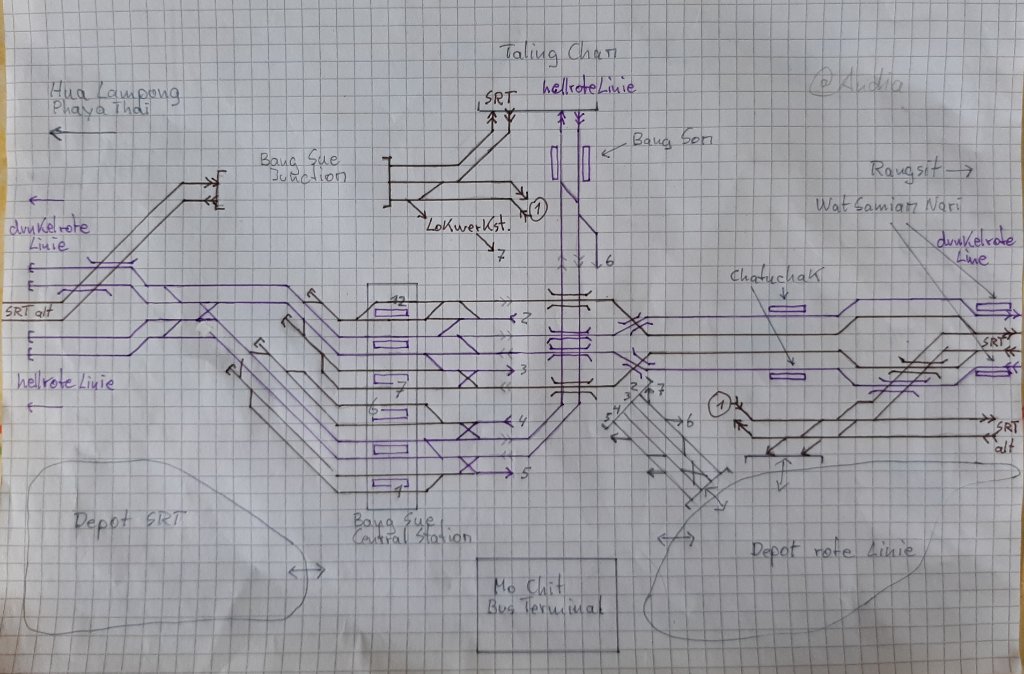 Taling Chan
@Andia
Hua Lampong
Phaya Thai
SRT
hellrote Linie
Bang Son
Bang Sue
Junction
Rangsit
Wat Samian Nari
1
Lokwerkst.
7
dunkelrote
Linie
6
dunkelrote
Linie
Chatuchak
SRT alt
12
2
SRT
3
hellrote Linie
7
6
4
5
1
2
3
4
5
7
6
1
SRT
alt
Bang Sue
Central Station
Depot SRT
Depot rote Linie
Mo Chit
Bus Terminal